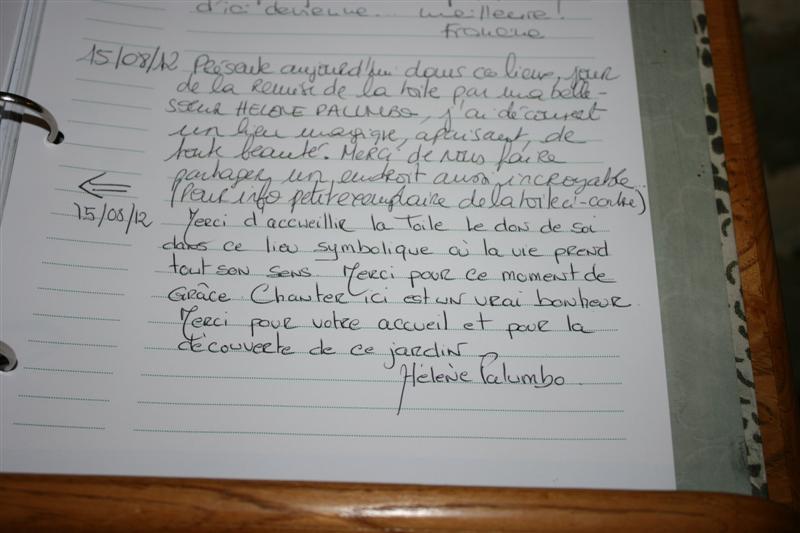 d'ici devienne... meilleure!
Francine
15/08/12 Présente aujourd'hui dans ce lieu, jour
de la remise de la toile par ma belle-
soeur HELENE PALUMBO, j'ai découvert
un lieu magique, apaisant, de
toute beauté. Merci de nous faire
partager un endroit aussi incroyable.
(Pour info petit exemplaire de la toile ci-contre)
15/08/12 Merci d'accueillir la toile le don de soi
dans ce lieu symbolique où la vie prend
tout son sens Merci pour ce moment de
Grâce Chanter ici est un vrai bonheur
Merci pour votre accueil et pour la
découverte de ce jardin
Hélène Palumbo